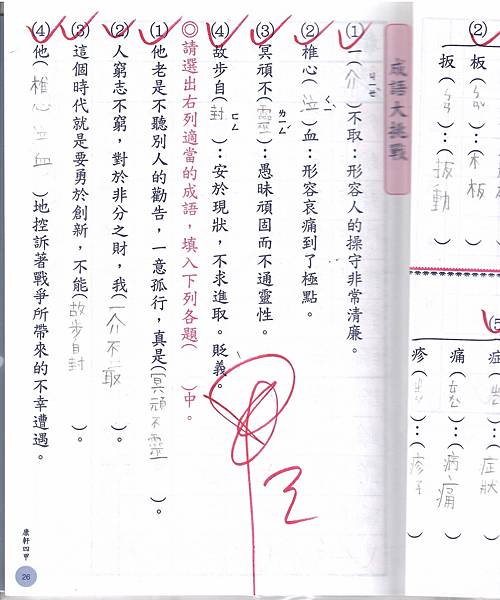 ②
板(ㄅㄢˇ)…(木板)
扳(ㄅㄢ)…(扳動)
⑤
症(ㄓㄥˋ)…(症狀)
痛(ㄊㄨㄥˋ)…(病痛)
疹(ㄓㄣˇ)…(疹子)
成語大挑戰
①一(介ㄐㄧㄝˋ)不取：形容人的操守非常清廉。
②椎心(泣ㄑㄧˋ)血：形容哀痛到了極點。
③冥頑不(靈ㄌㄧㄥˊ)：愚昧頑固而不通靈性。
④故步自(封ㄈㄥ)：安於現狀，不求進取。貶義。
◎請選出右列適當的成語，填入下列各題(　)中。
⑴他老是不聽別人的勸告，一意孤行，真是(冥頑不靈)。
⑵人窮志不窮，對於非分之財，我(一介不取)。
⑶這個時代就是要勇於創新，不能(故步自封)。
⑷他(椎心泣血)地控訴著戰爭所帶來的不幸遭遇。
甲
康軒四甲
26